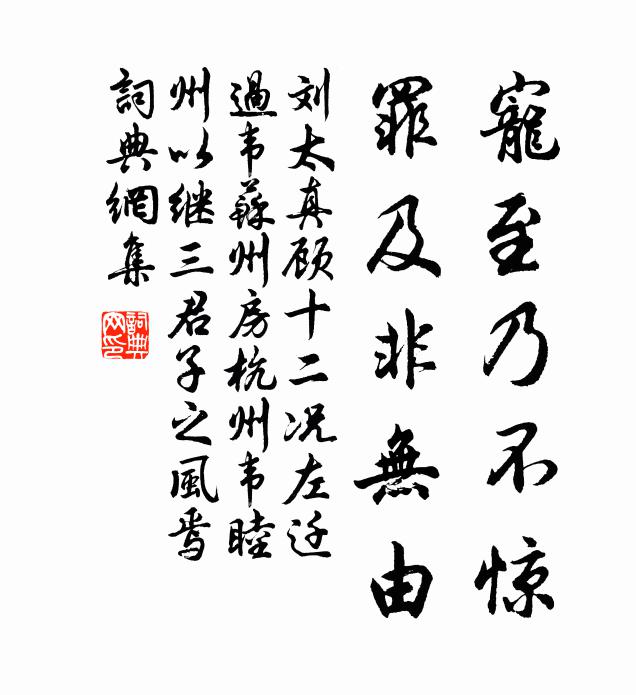 寵至乃不惊
罪及非無由
刘太真顾十二况左迁
過韦蘇州房杭州韦睦
州以继三君子之風焉
詞典網集
詞典网印